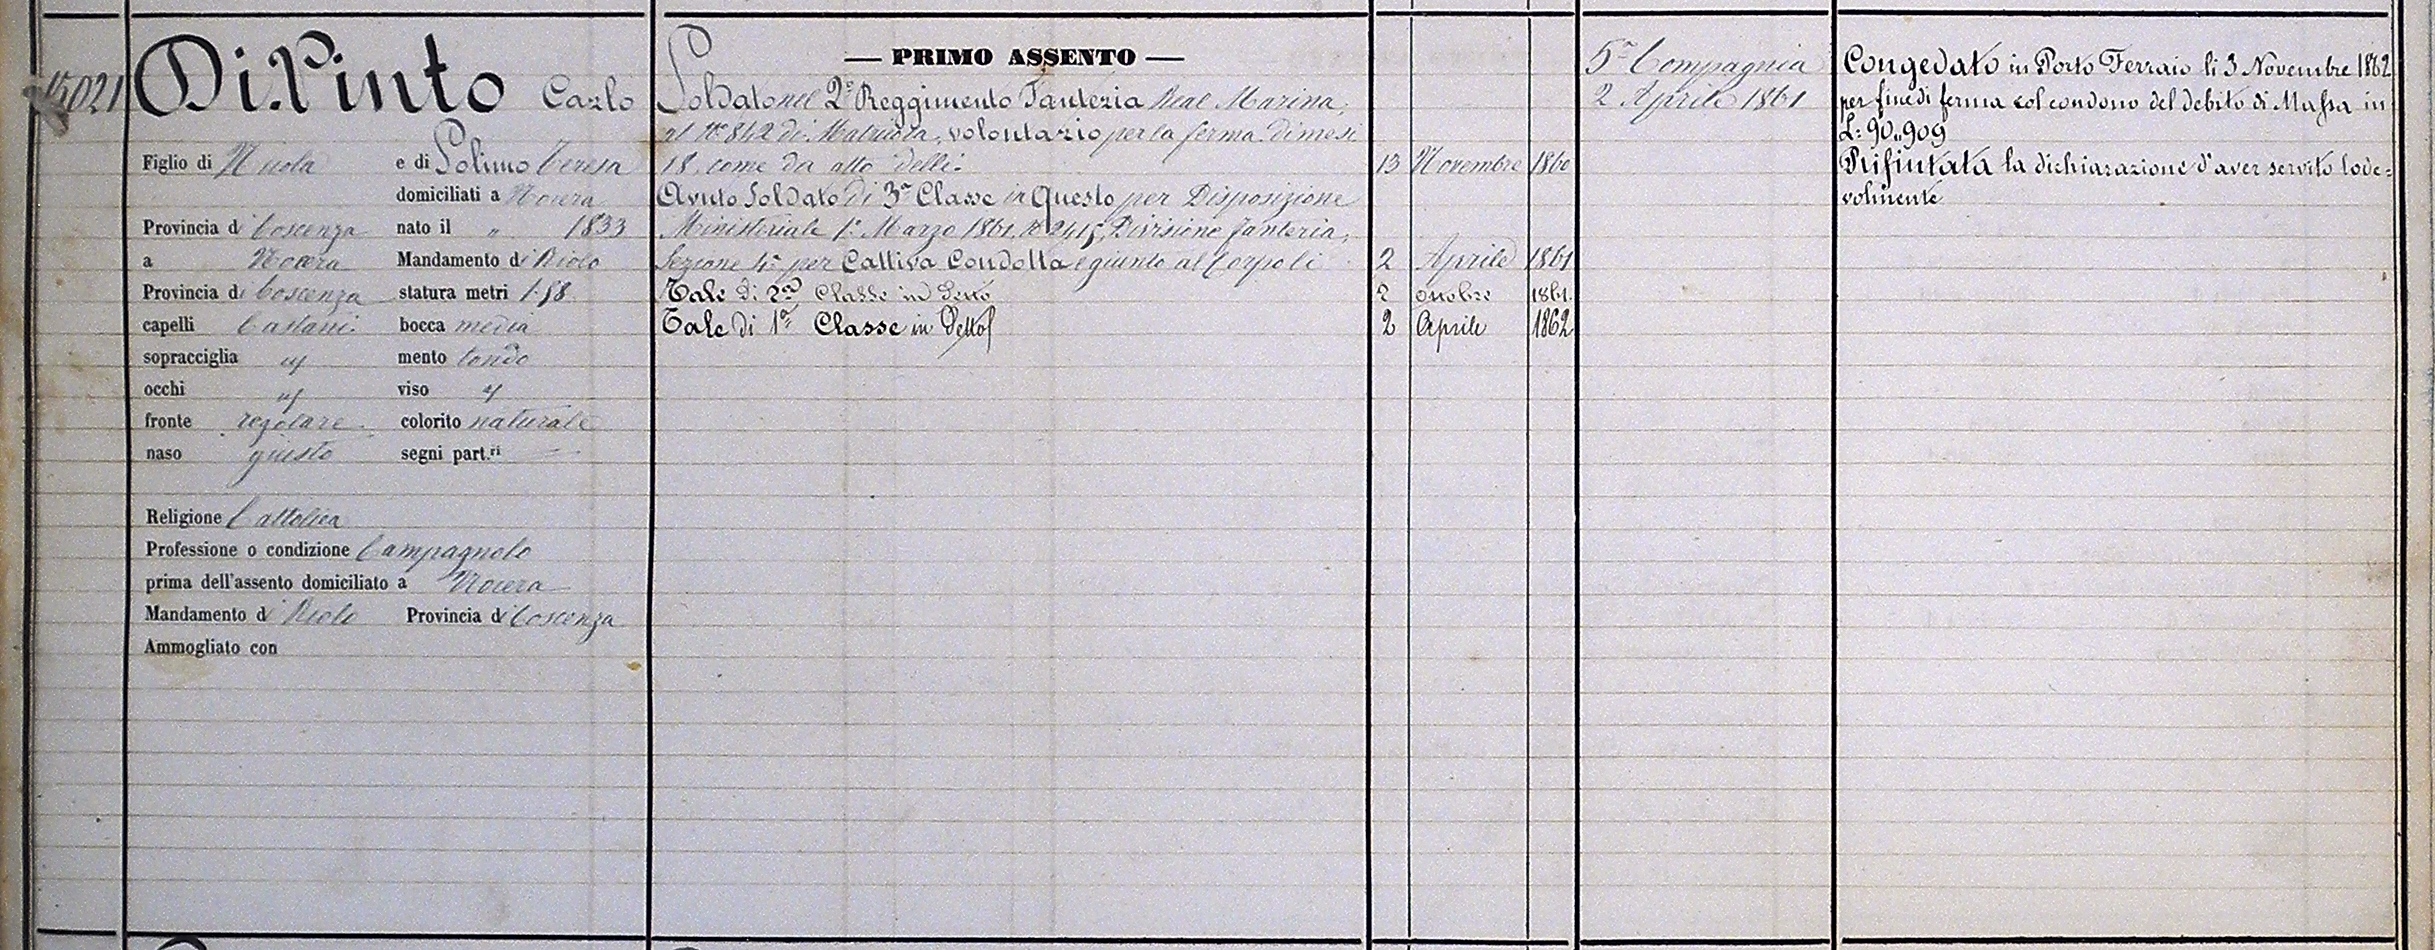 15021
Di Pinto Carlo
Figlio di Nicola e di Solimo Teresa
domiciliati a Nocera
Provincia di Coscenza nato il " 1833
a Nocera Mandamento di Aiolo
Provincia di Coscenza statura metri 1.58
capelli Castani bocca media
sopracciglia id mento tondo
occhi id viso id
fronte regolare colorito naturale
naso giusto segni part.ri
Religione Cattolica
Professione o condizione Campagnolo
prima dell'assento domiciliato a Nocera
Mandamento di Aiolo Provincia di Coscenza
Ammogliato con
— PRIMO ASSENTO —
Soldato nel 2° Reggimento Fanteria Real Marina,
al N° 842 di Matricola, volontario per la ferma di mesi
18, come da atto delli. 13 Novembre 1860
Avuto Soldato di 3a Classe in Questo per Disposizione
Ministeriale 1° Marzo 1861 N° 2415, Divisione fanteria,
Sezione 4a per Cattiva Condotta e giunto al Corpo li 2 Aprile 1861
Tale di 2a Classe in Detto 2 ottobre 1861.
Tale di 1a Classe in Detto 2 Aprile 1862
5a Compagnia
2 Aprile 1861
Congedato in Porto Ferraio li 3 Novembre 1862
per fine di ferma col condono del debito di Massa in
L: 90.,909
Rifiutata la dichiarazione d'aver servito lode=
volmente